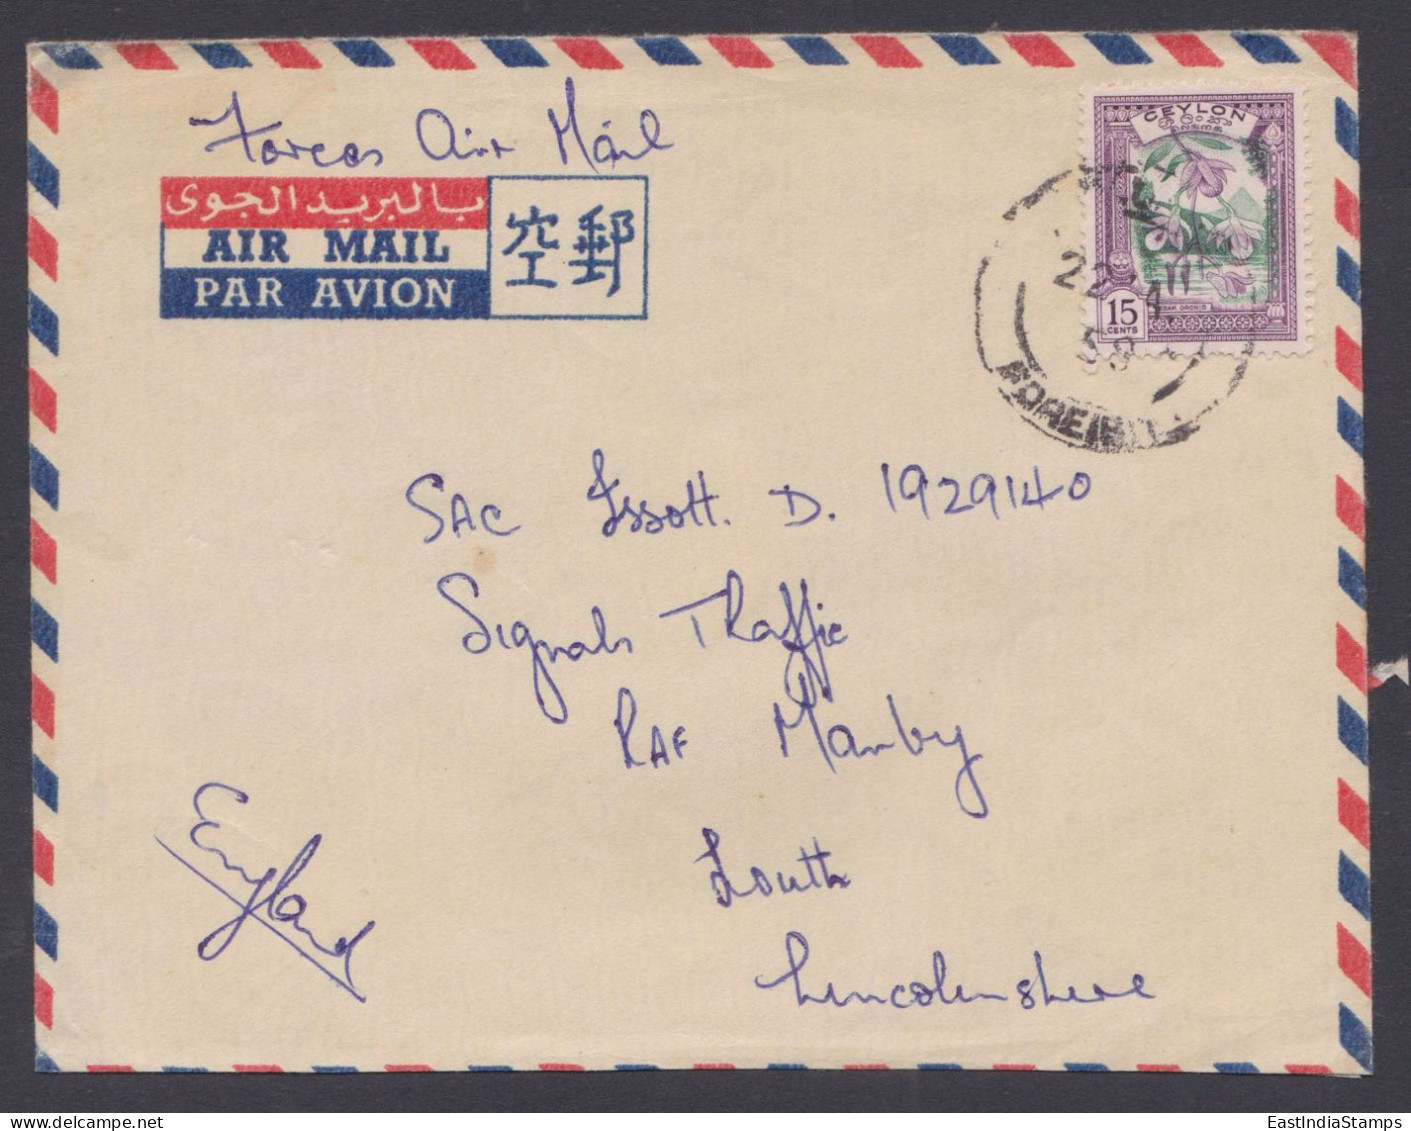 Forces Air Mail
بالبريد الجوى
AIR MAIL
PAR AVION
空郵
CEYLON
15
CENTS
22
58
FOREIGN
SAC Issott. D. 1929140
Signals Traffic
RAF Manby
Louth
Lincolnshire
England
EastIndiaStamps